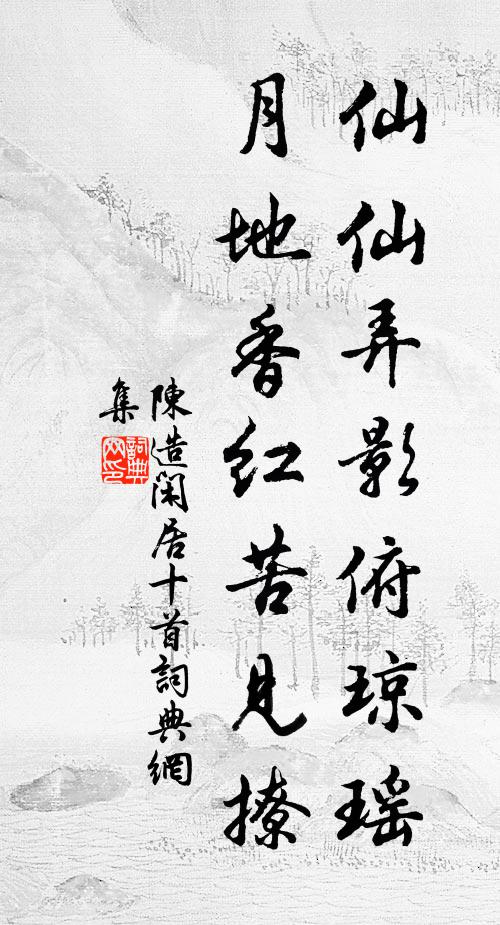 仙仙弄影俯琼瑶
月地香红苦見撩
陳造閑居十首詞典網
集
詞典网印